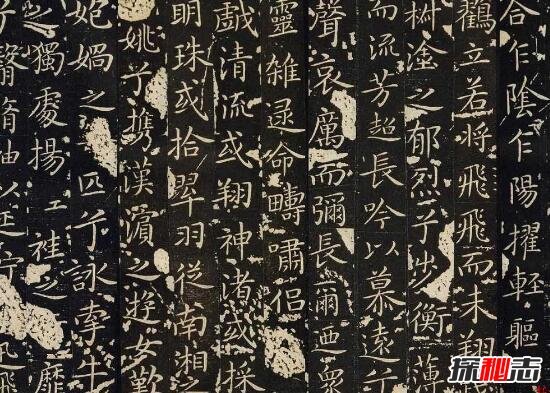 合乍陰乍陽擢輕軀
鸖立若將飛飛而未翔
椒塗之郁烈兮步衡薄
而流芳超長吟以慕遠兮
聲哀厲而彌長爾迺眾
靈雜遝命疇嘯侶
戲清流或翔神渚或採
明珠或拾翠羽從南湘之
姚兮攜漢濱之遊女歎
媧之匹兮詠牽牛
之獨處揚袿之靡
兮翳脩袖以延佇
探秘志